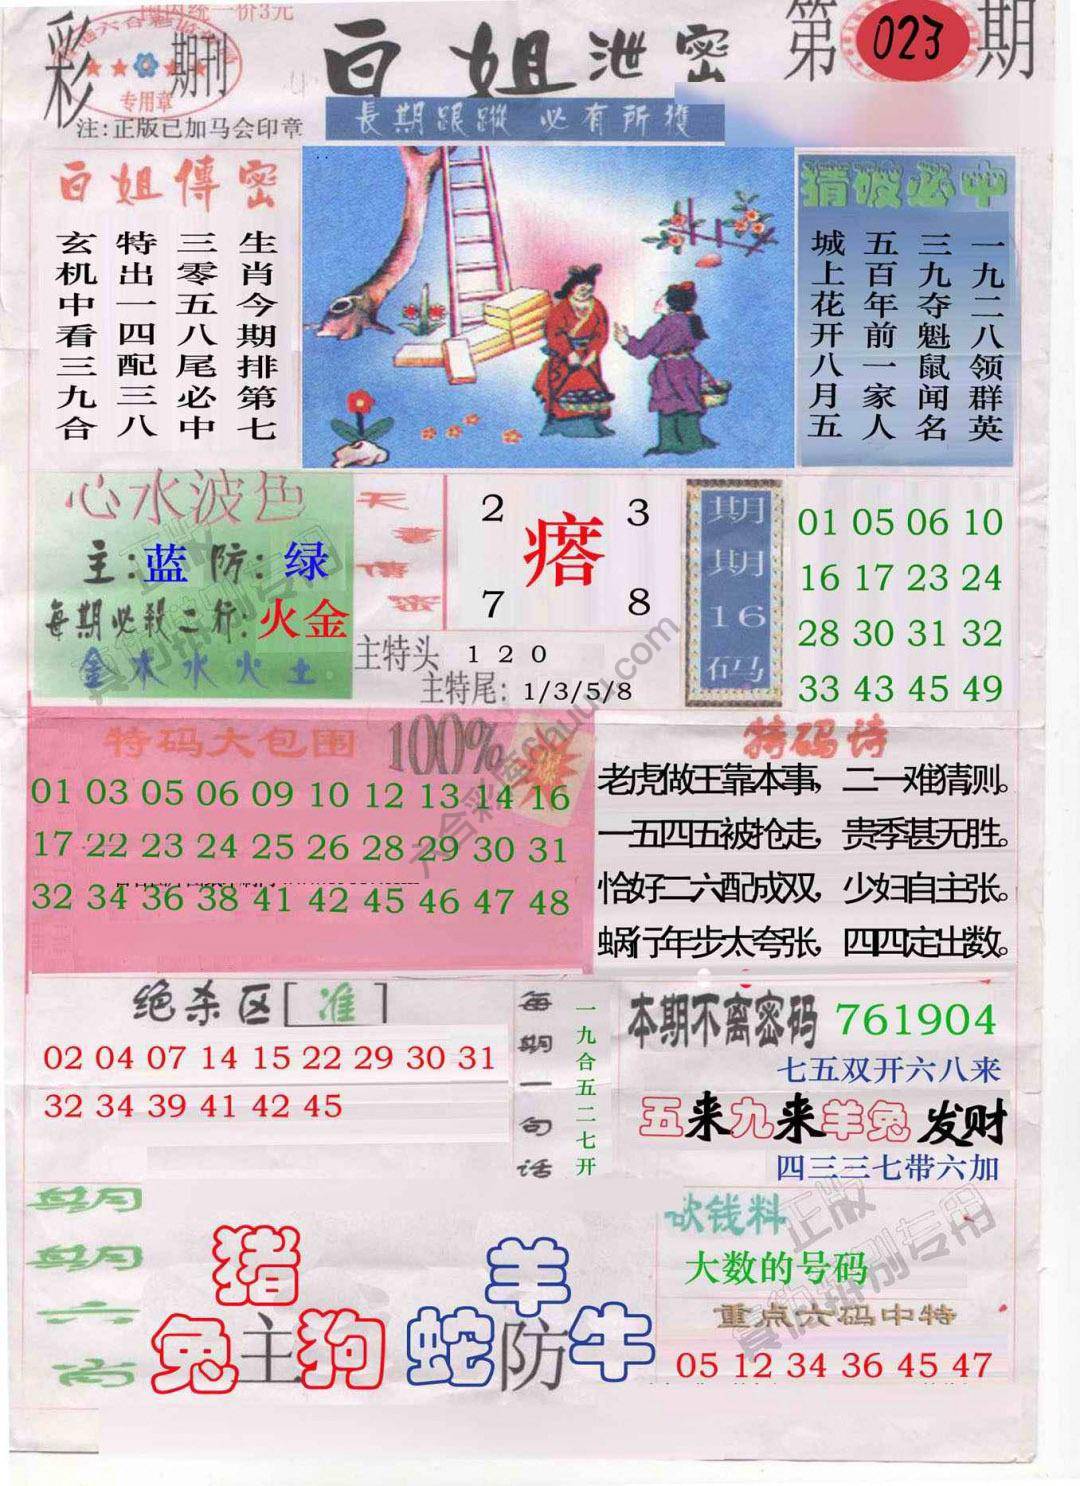 国内统一价3元
彩 期刊
专用章
注:正版已加马会印章
白姐泄密
長期跟蹤 必有所獲
第023期
白姐傳密
生肖今期排第七
三零五八尾必中
特出一四配三八
玄机中看三九合
猜破必中
一九二八领群英
三九夺魁鼠闻名
五百年前一家人
城上花开八月五
心水波色
主:蓝 防:绿
每期必殺二行:火金
金木水火土
天書傳密
2 3
瘩
7 8
主特头 1 2 0
主特尾: 1/3/5/8
期期16码
01 05 06 10
16 17 23 24
28 30 31 32
33 43 45 49
特码大包围 100%
01 03 05 06 09 10 12 13 14 16
17 22 23 24 25 26 28 29 30 31
32 34 36 38 41 42 45 46 47 48
特码诗
老虎做王靠本事，二一难猜则。
一五四五被抢走，贵季甚无胜。
恰好二六配成双，少妇自主张。
蜗行年步太夸张，四四定出数。
绝杀区[准]
02 04 07 14 15 22 29 30 31
32 34 39 41 42 45
每期一句话
一九合五二七开
本期不离密码 761904
七五双开六八来
五来九来羊兔发财
四三三七带六加
期期六肖
猪
兔主狗
羊
蛇防牛
砍钱料
大数的号码
重点六码中特
05 12 34 36 45 47